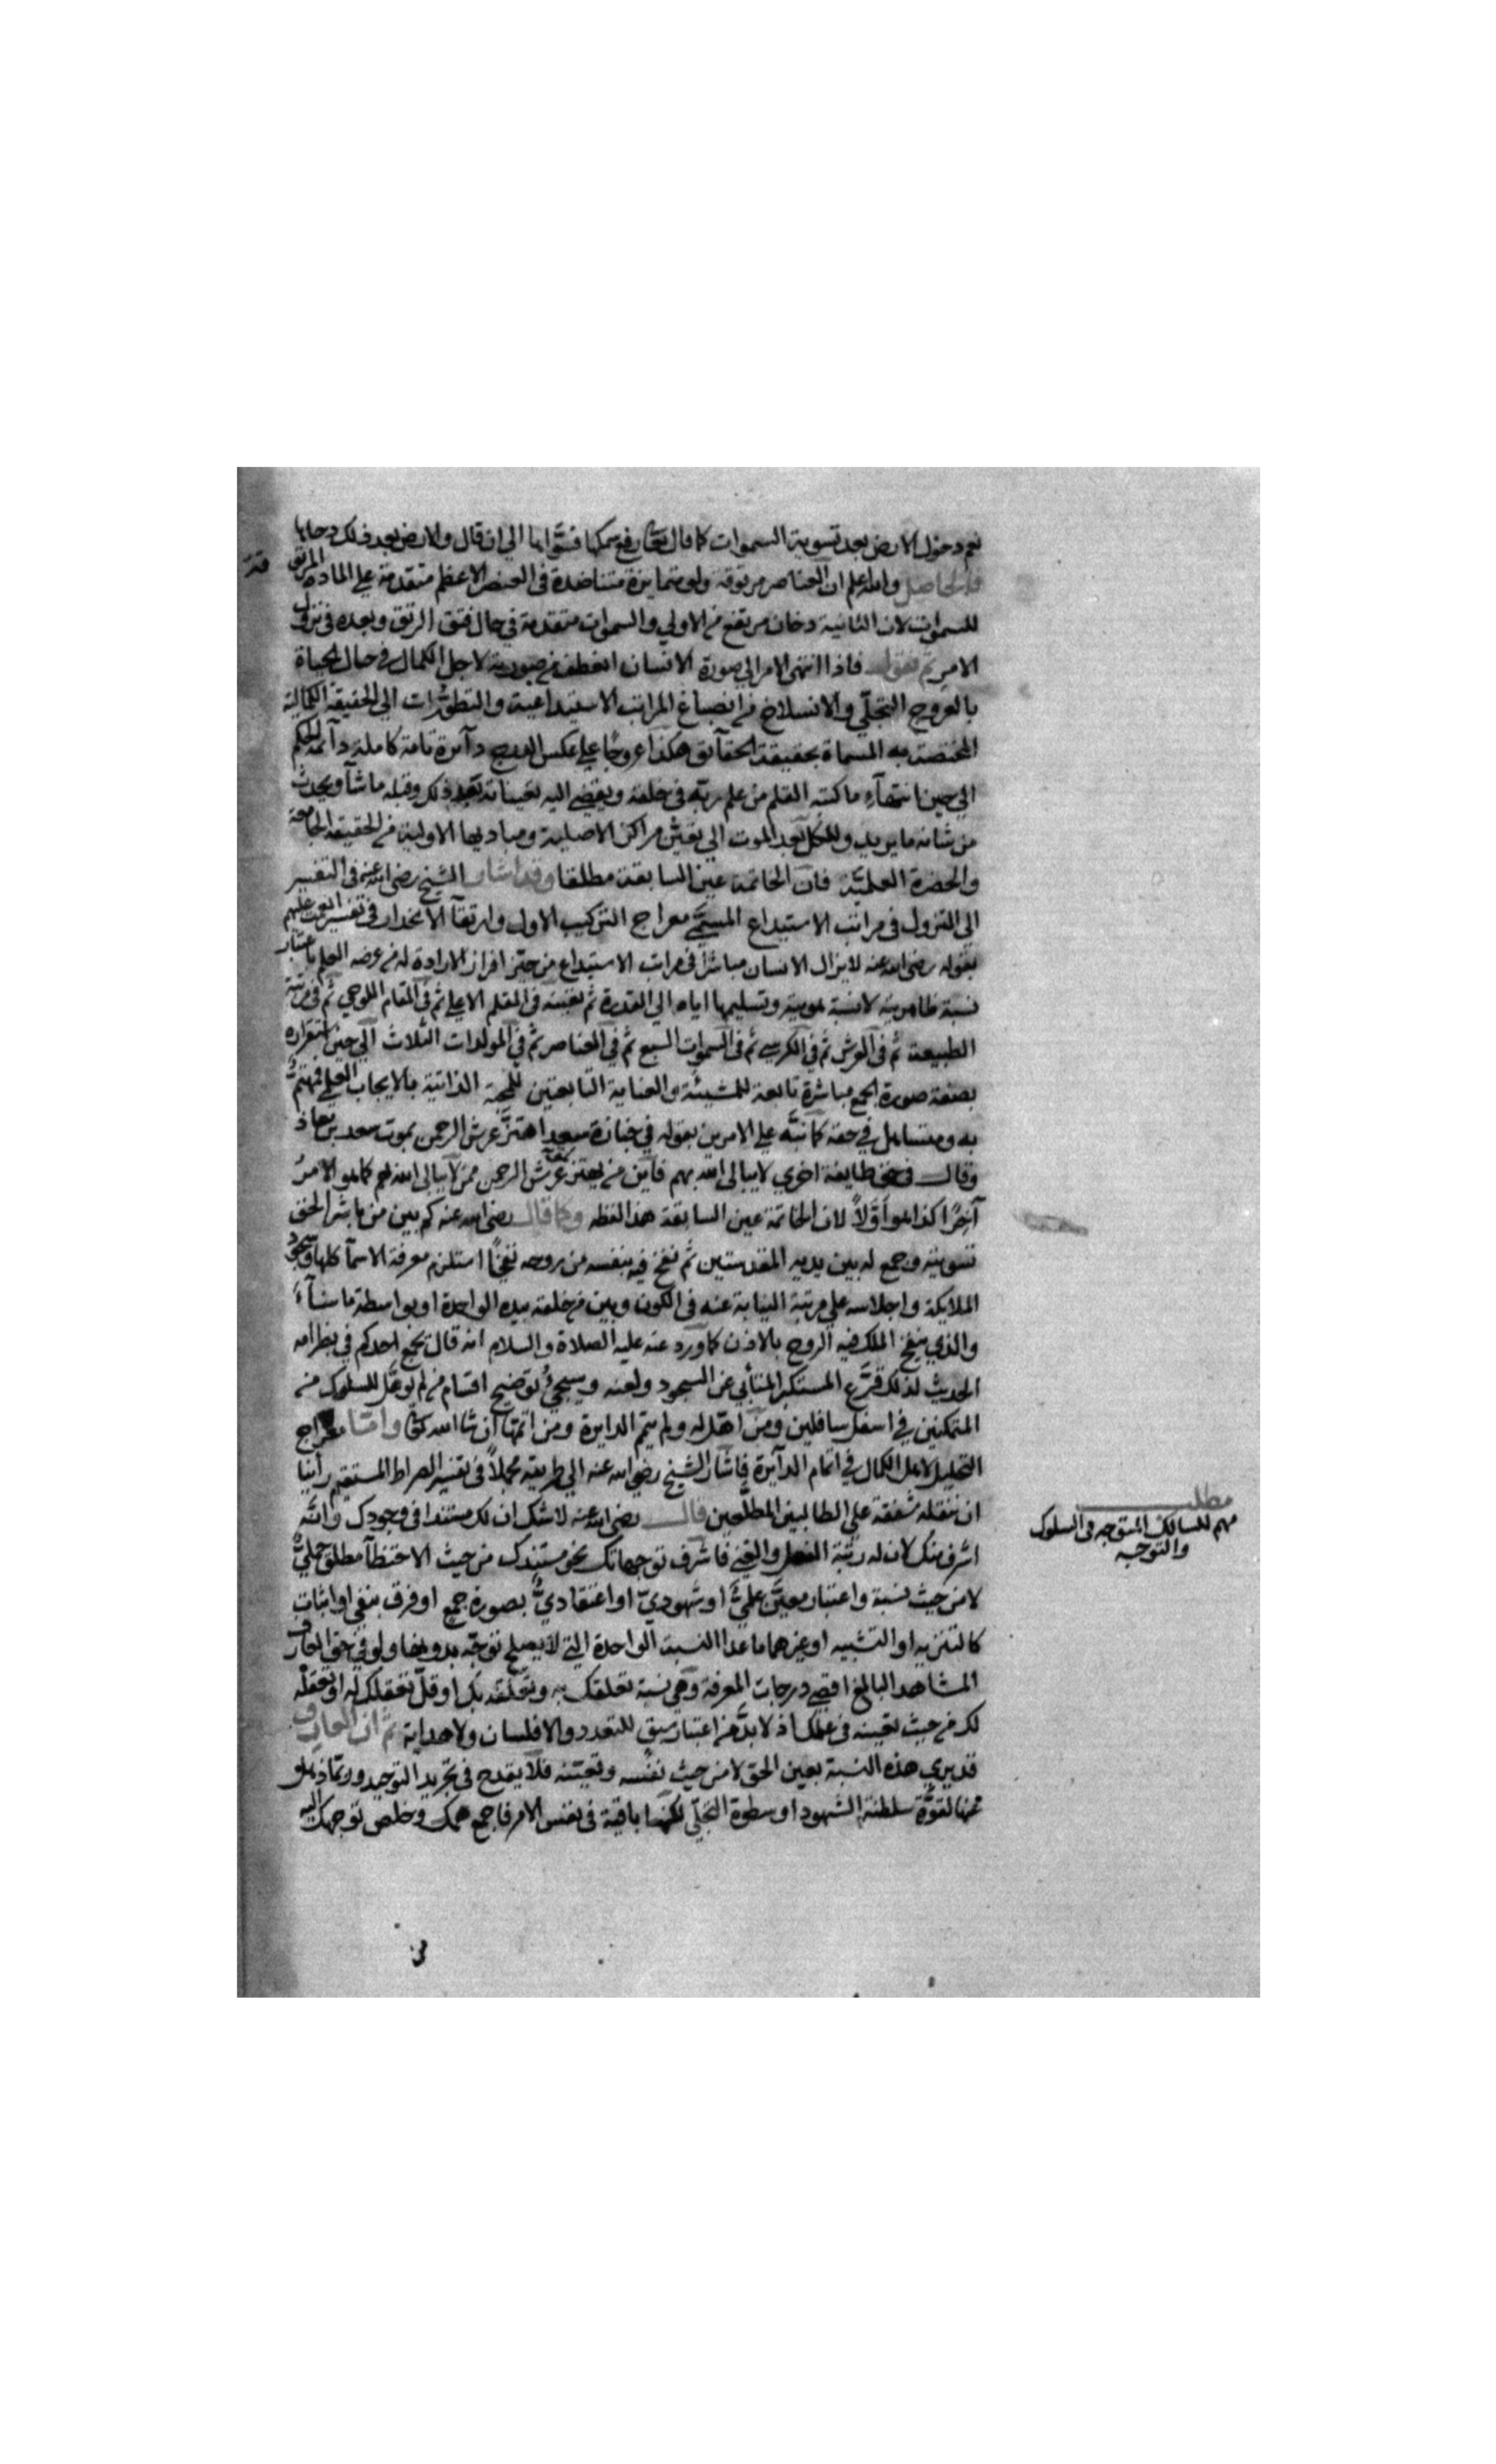 نعم دحو الارض بعد تسوية السموات كما قال تعالى رفع سمكها فسواها الى ان قال والارض بعد ذلك دحاها
فالحاصل والله اعلم ان العناصر مرتوقة ولو متمايزة متناضدة فى العنصر الاعظم متقدمة على المادة
للسموات لان الثانية دخان مرتفع من الاولى والسموات متقدمة فى حال فتق الرتق وبعده فى تنزل
الامر ثم نقول فاذا انتهى الامر الى صورة الانسان انعطف من صورته لاجل الكمال فى حال الحياة
بالعروج التجلى والانسلاخ من انصباغ المراتب الاستيداعية والتطورات الى الحقيقة الكمالية
المختصة به المسماة بحقيقة الحقآئق هكذا عروجا على عكس دآئرة تامة كاملة دآئمة الحكم
الى حين انتهآء ما كتبه القلم من علم ربه فى خلقه ويفضى اليه تعيناته بعد ذلك وقبله ما شآ ويحدث
من شانه ما يريد وللكل بعد الموت الى مراكز الاصلية ومباديها الاولية من الحقيقة الجامعة
والحضرة العلمية فان الخاتمة عين السابقة مطلقا وقد اشار الشيخ رضى الله عنه فى التفسير
الى النزول فى مراتب الاستيداع المسمى معراج التركيب الاول وارتقآ الانحدار فى تفسير انعمت عليهم
بقوله رضى الله عنه لا يزال الانسان مباشرا فى مراتب الاستيداع من حين افراز الارادة له من عرصة العلم باعتبار
نسبة ظاهريته لا نسبة ثبوته وتسليمها اياه الى القدرة ثم تعينه فى القلم الاعلى ثم فى المقام اللوحى ثم فى مرتبة
الطبيعة ثم فى العرش ثم فى الكرسى ثم فى السموات السبع ثم فى العناصر ثم فى المولدات الثلاث الى حين استقراره
بصفة صورة الجمع مباشرة تابعة للمشيئة والعناية التابعتين للمحبة الذاتية بالايجاب العلى فمهتم
به ومتساهل فى حقه كما نبه على الامرين بقوله فى جنازة سعد اهتز عرش الرحمن بموت سعد بن معاذ
وقال فى حق طايفة اخرى لا يبالى الله بهم فاين من يهتز لموته عرش الرحمن ممن لا يبالى الله بهم كما هو الامر
آخرا كذا هو اولا لان الخاتمة عين السابقة هذا لفظه وكما قال رضى الله عنه كم بين من باشر الحق
تسويته وجمع له بين يديه المقدستين ثم نفخ فيه بنفسه من روحه نفخا استلزم معرفة الاسمآ كلها وسجود
الملايكة واجلاسه على مرتبة النيابة عنه فى الكون وبين من خلقه بيده الواحدة او بواسطة ما شآء
والذى ينفخ الملك فيه الروح بالاذن كما ورد عنه عليه الصلاة والسلام انه قال يجمع احدكم فى بطن امه
الحديث لذلك قرع المستكبر المتأبى عن السجود ولعنه وسيجئ توضيح اقسام من لم يؤهل للسلوك من
المتمكنين فى اسفل سافلين ومن اهل له ولم يتم الدايرة ومن اتمها ان شا الله تعالى واما معراج
التحليل لاهل الكمال فى اتمام الدآئرة فاشار الشيخ رضى الله عنه الى طريقته مجملا فى تفسير الصراط المستقيم رأينا
ان ننقله شفقة على الطالبين المطلعين قال رضى الله عنه لا شك ان لك مستندا فى وجودك وانه
اشرف منك لان له رتبة الفعل والغنى فاشرف توجهاتك نحو مستندك من حيث الاحتظآ مطلق جملى
لا من حيث نسبة واعتبار معين علمى او شهودى او اعتقادى بصورة جمع او فرق بنفى او اثبات
كالتنزيه او التشبيه او غيرهما ما عدا النسبة الواحدة التى لا يصلح توجه بدونها ولو فى حق العارف
المشاهد البالغ اقصى درجات المعرفة وهى نسبة تعلقك به وتعلقه بك او قل تعقلك له او تعقله
لك من حيث تعينه فى علمك اذ لا بد من اعتبار سبق للتعدد ثم ان العارف
قد يرى هذه النسبة بعين الحق لا من حيث نفسه وتعينه فلا يقدح فى تجريد التوحيد وربما ذهل
عنها لقوة سلطنة الشهود او سطوة التجلى لكنها باقية فى نفس الامر فاجمع همك وخلص توجهك اليه
مطلب
مهم للسالك المتوجه فى السلوك
والتوجه